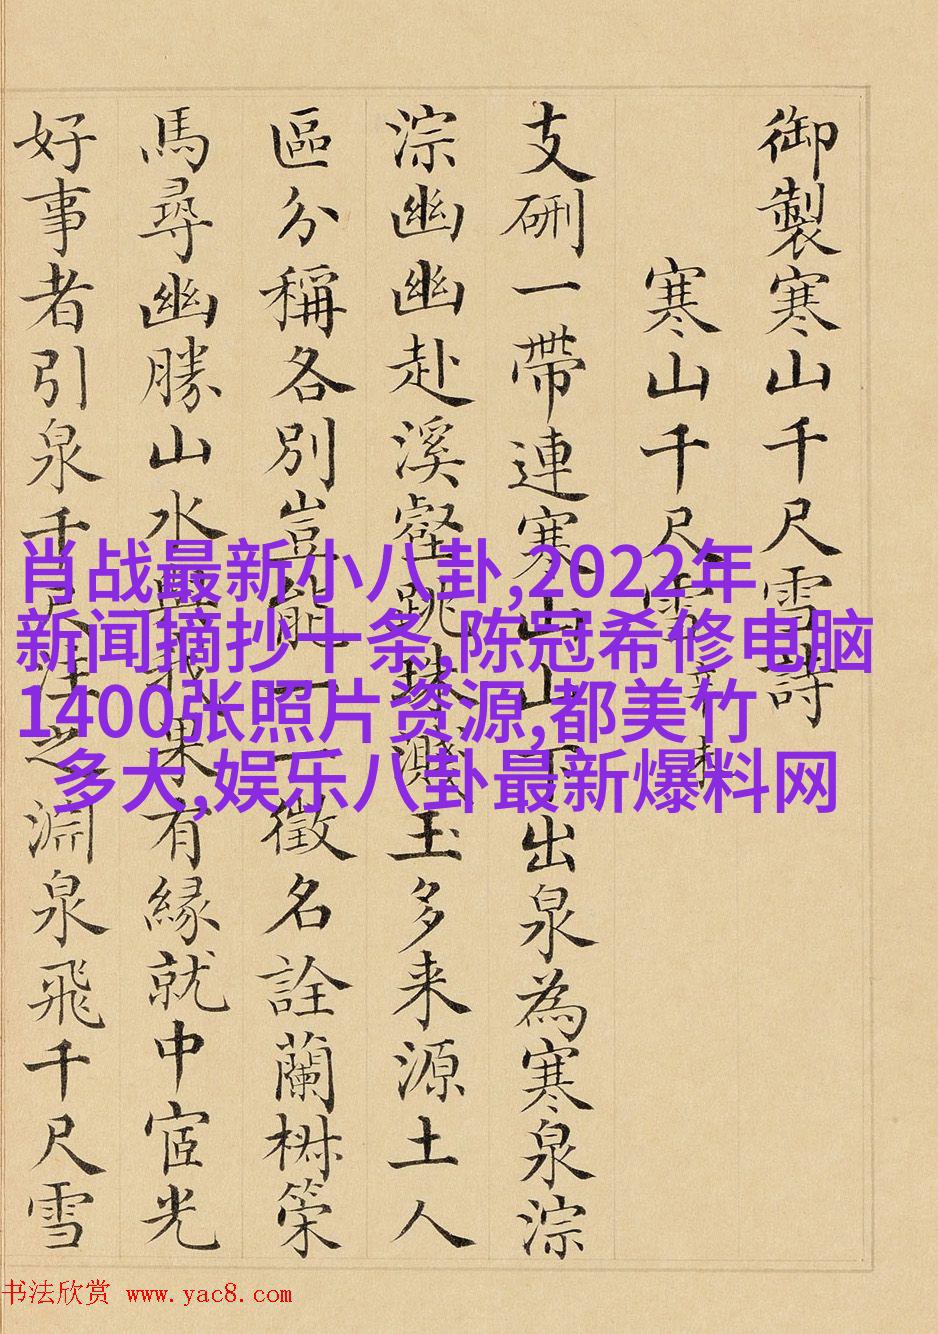 御製寒山千尺雪詩
寒山千尺雪
支硎一帶連寒山山下出泉為寒泉淙
淙幽幽赴溪壑跳珠濺玉多来源土人
區分稱各別豈能一一徵名詮蘭策
馬尋幽勝山水與我果有緣就中宦光
好事者引泉千尺注之淵泉飛千尺雪
肖战最新小八卦,2022年
新闻摘抄十条,陈冠希修电脑
1400张照片资源,都美竹
多大,娱乐八卦最新爆料网
书法欣赏 www.yac8.com